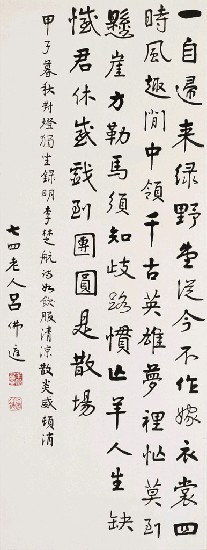 一自歸來綠野堂從今不作嫁衣裳四
時風趣閒中領千古英雄夢裡忙莫到
懸崖方勒馬須知歧路慣亡羊人生缺
憾君休感戲到團圓是散場
甲子暮秋對燈獨坐錄明李楚航詩如飲服清涼散炎威頓消
七四老人呂佛庭